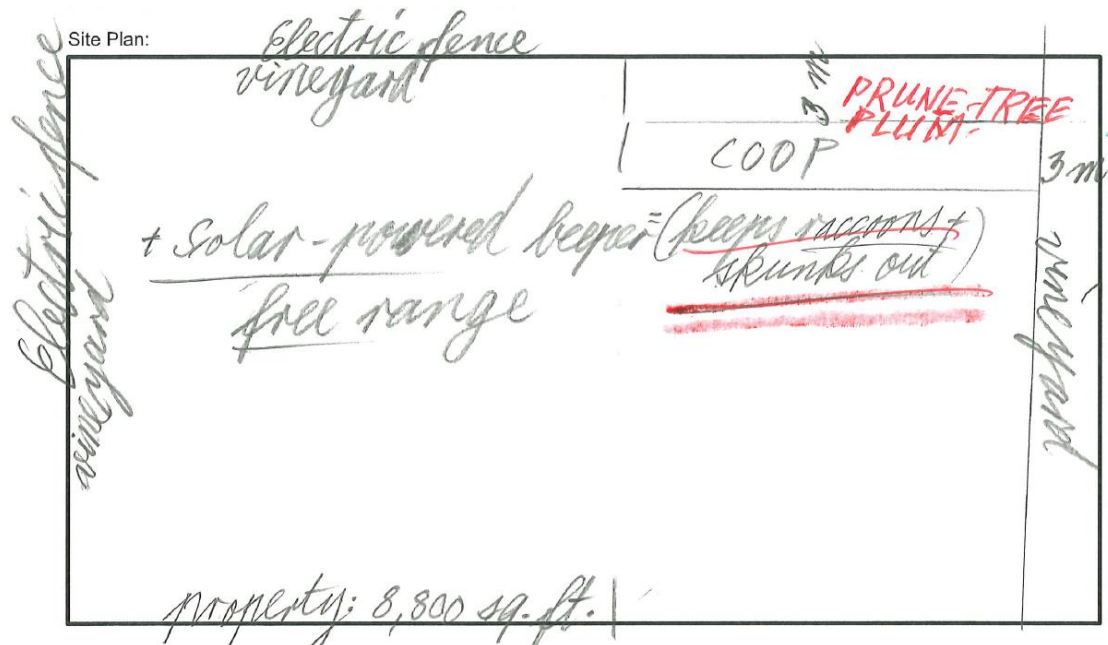 Site Plan:
Electric fence
vineyard
Electric fence
vineyard
3 m
PRUNE-TREE
PLUM-
COOP
3 m
+ solar-powered beeper = (keeps raccoons +
skunks out)
free range
vineyard
property: 8,800 sq. ft.